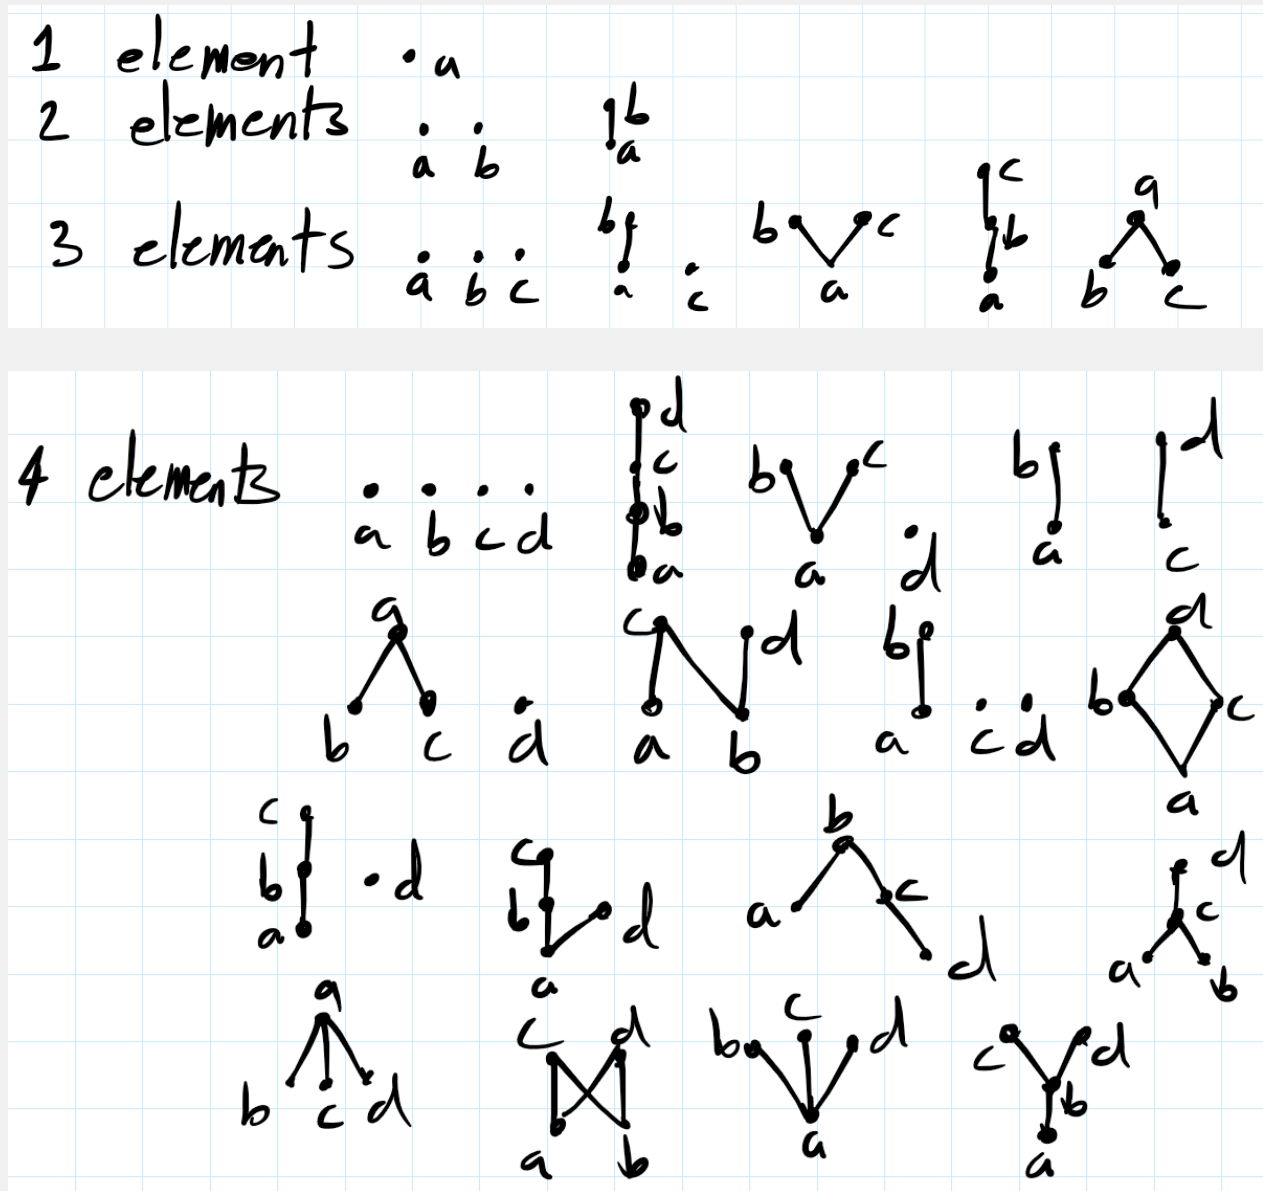 1 element a
2 elements a b b a
3 elements a b c b a c b c a c b a a b c
4 elements a b c d d c b a b c a d b a d c
a b c d c d a b b a c d d b c a
c b a d c b a d b a c d d c a b
a b c d c d a b b c d a c d b a